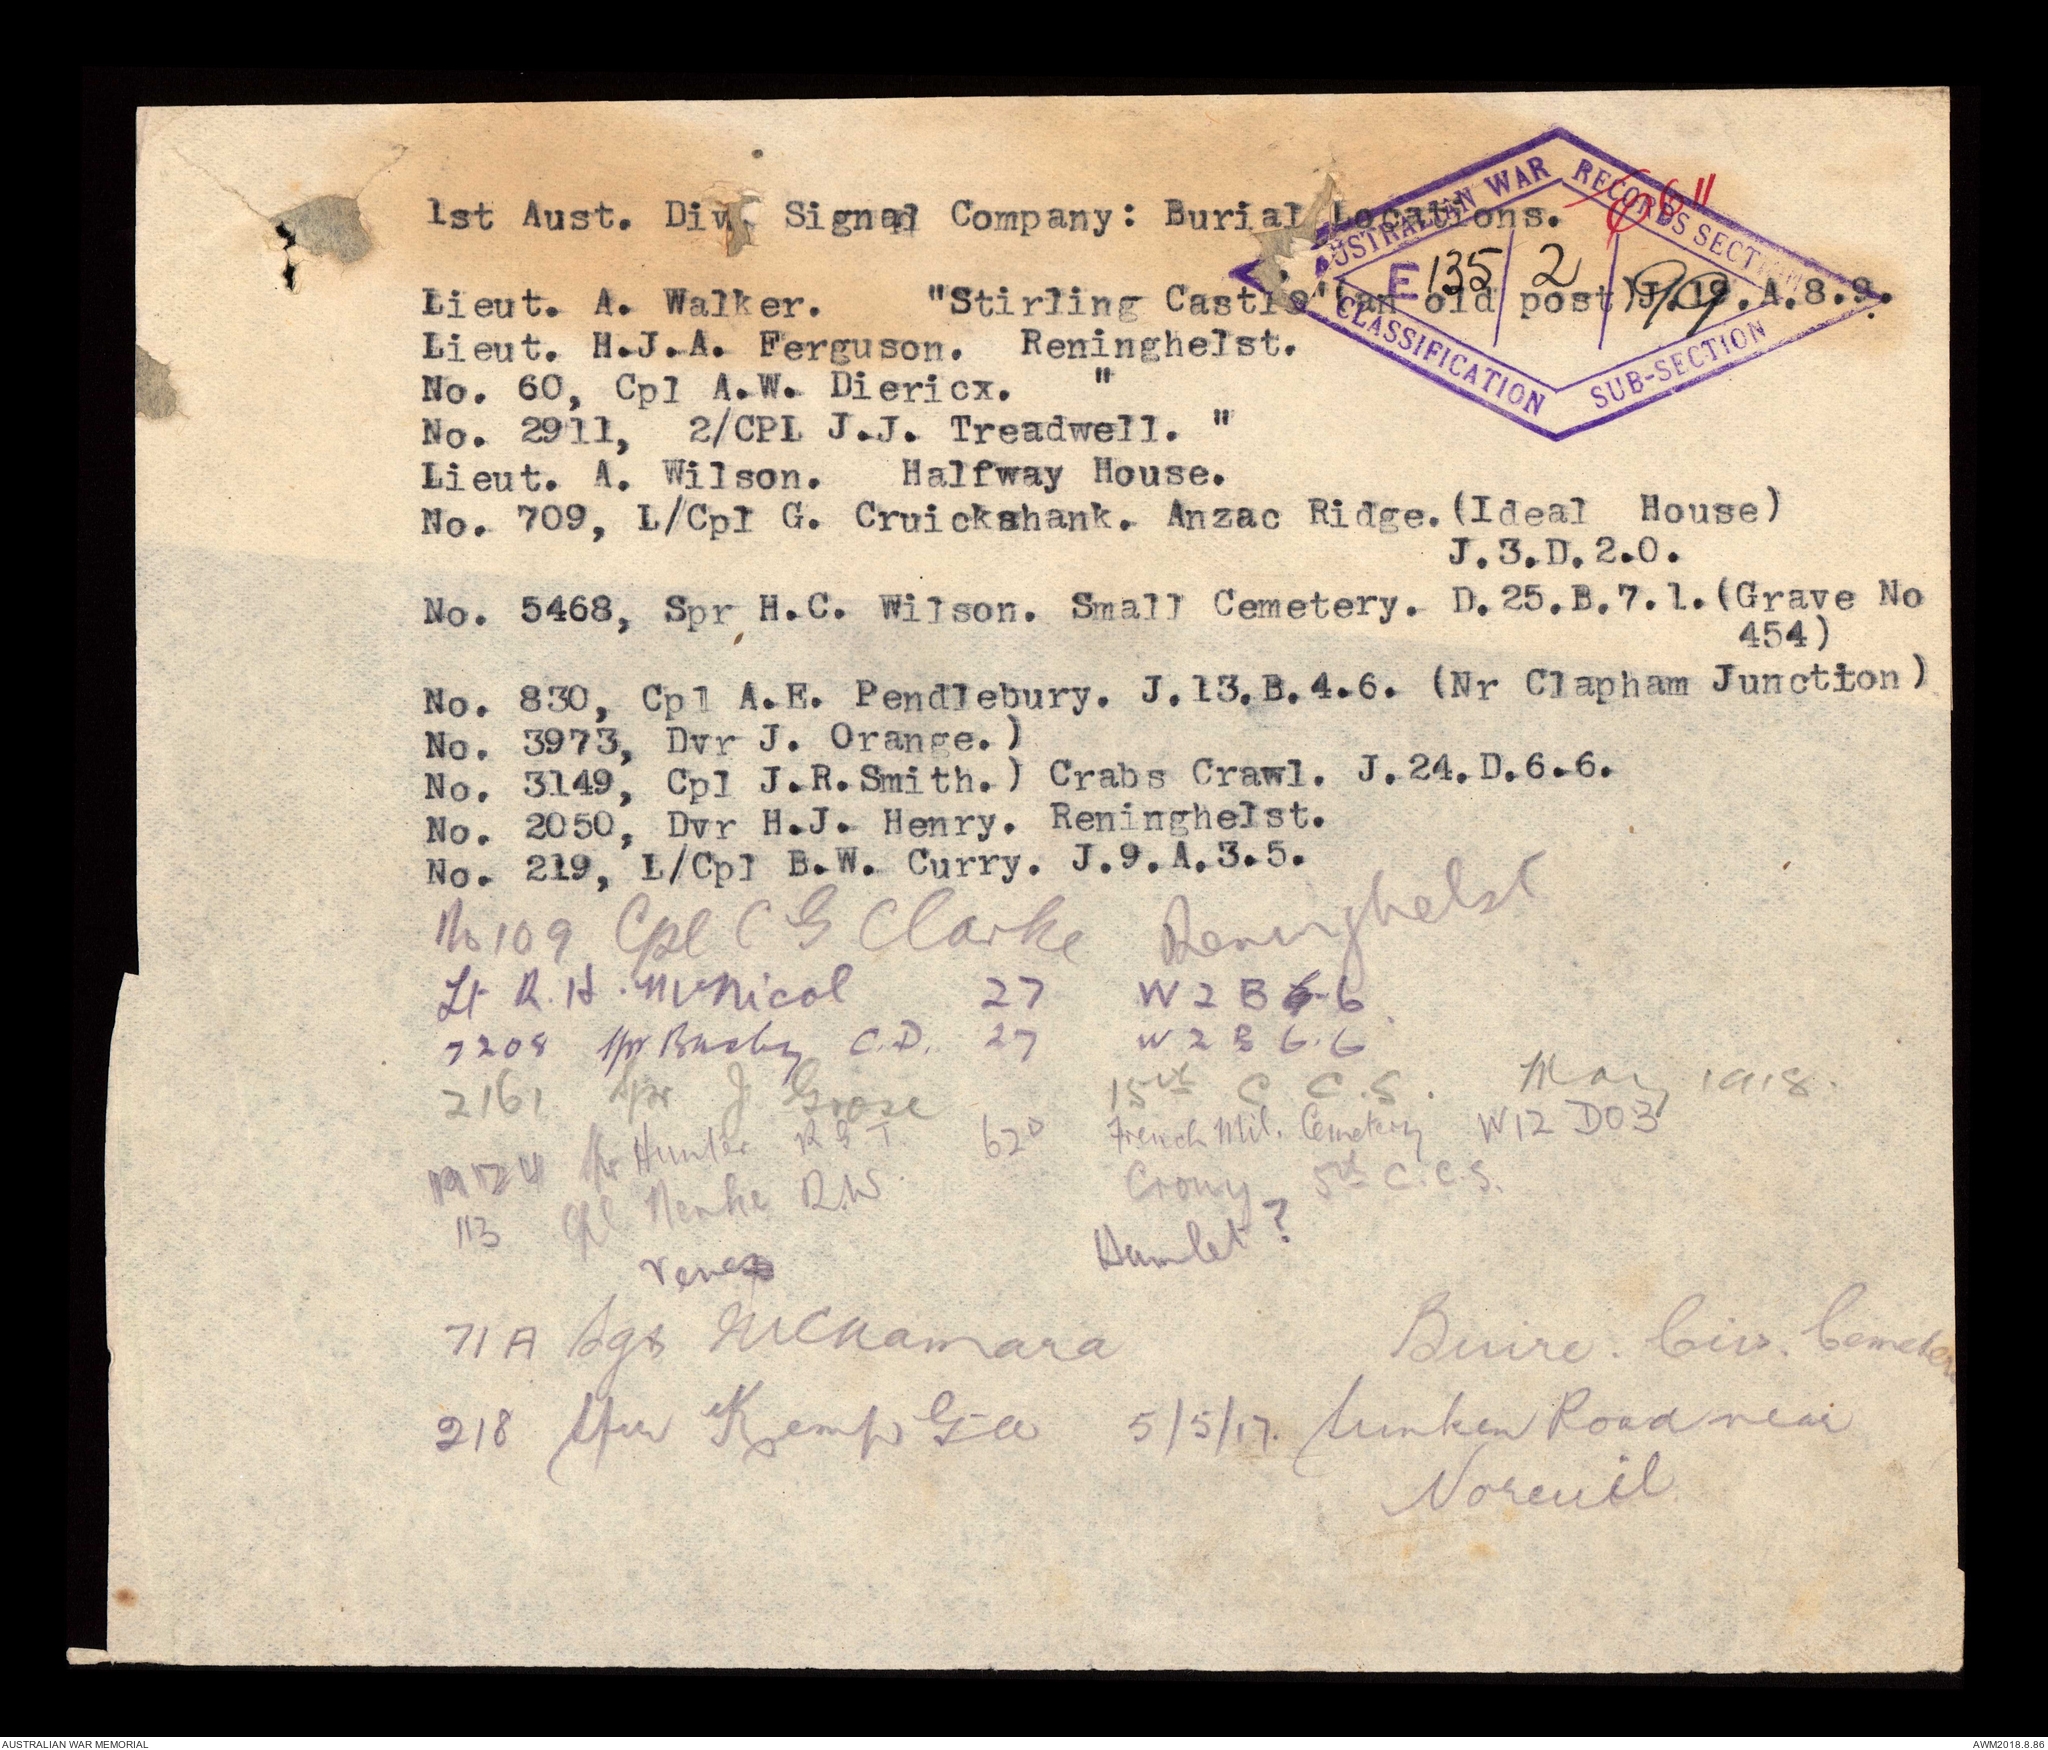 1st Aust. Div. Signal Company: Burial Locations.
AUSTRALIAN WAR RECORDS SECTION
E 135 / 2 / 99
CLASSIFICATION SUB-SECTION
Lieut. A. Walker. "Stirling Castle"(an old post)J.19.A.8.9.
Lieut. H.J.A. Ferguson. Reninghelst.
No. 60, Cpl A.W. Diericx. "
No. 2911, 2/CPL J.J. Treadwell. "
Lieut. A. Wilson. Halfway House.
No. 709, L/Cpl G. Cruickshank. Anzac Ridge.(Ideal House)
J.3.D.2.0.
No. 5468, Spr H.C. Wilson. Small Cemetery. D.25.B.7.1.(Grave No
454)
No. 830, Cpl A.E. Pendlebury. J.13.B.4.6. (Nr Clapham Junction)
No. 3973, Dvr J. Orange.)
No. 3149, Cpl J.R.Smith.) Crabs Crawl. J.24.D.6.6.
No. 2050, Dvr H.J. Henry. Reninghelst.
No. 219, L/Cpl B.W. Curry. J.9.A.3.5.
No 109 Cpl C G Clarke Reninghelst
Lt R. H. McNicol 27 W 2 B 6.6.
7208 Spr Busby C.D. 27 W 2 B 6.6
2161 Spr J Grose 15th C.C.S. May 1918.
Spr Hunter R S T 62D French Mil. Cemetery W12 D03
113 Cpl Nenke R.W. Crouy 5th C.C.S.
Hamlet?
71A Sgt McNamara Buire. Civ. Cemetery
218 Spr Kemp G A 5/5/17. Sunken Road near
Noreuil
AUSTRALIAN WAR MEMORIAL
AWM2018.8.86